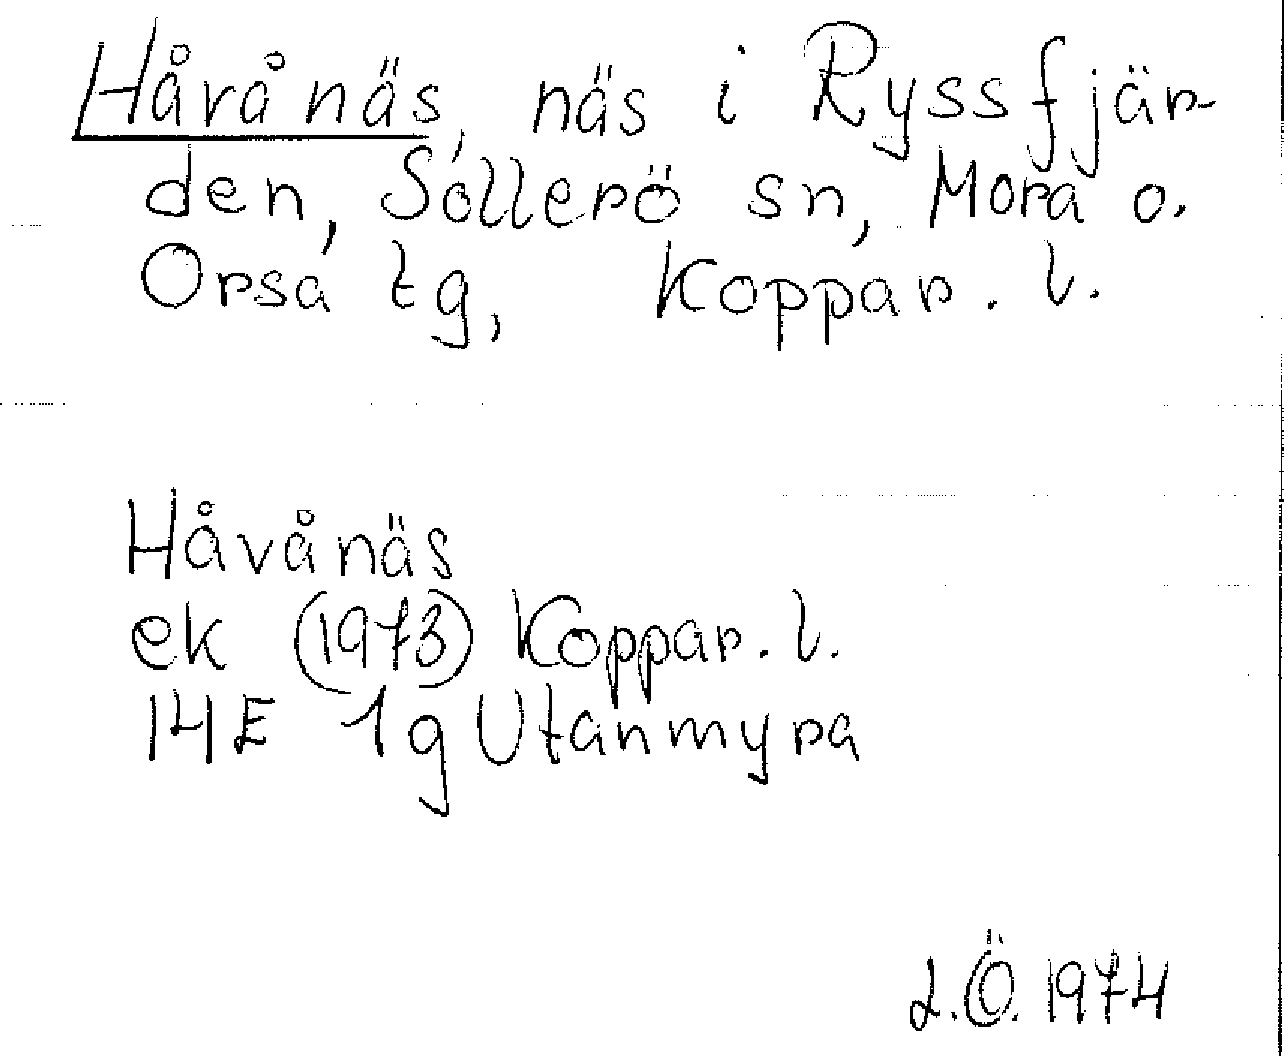 Håvånäs, näs i Ryssfjär-
den, Sollerö sn, Mora o.
Orsa tg, Koppar. l.
Håvånäs
ek (1973) Koppar. l.
14E 1g Utanmyra
L.Ö. 1974